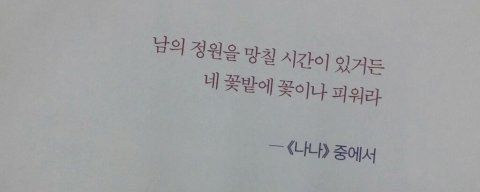 남의 정원을 망칠 시간이 있거든
네 꽃밭에 꽃이나 피워라
—《나나》 중에서